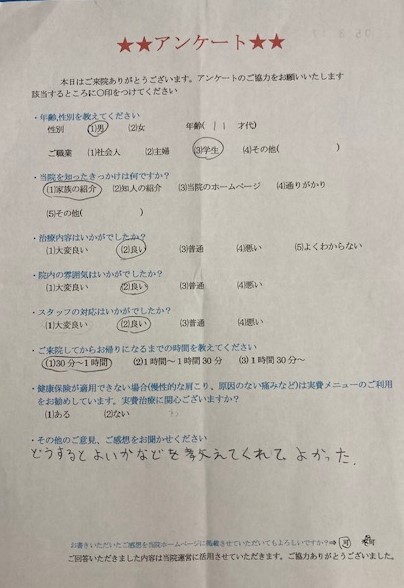 ★★アンケート★★
本日はご来院ありがとうございます。アンケートのご協力をお願いいたします
該当するところに〇印をつけてください
・年齢,性別を教えてください
性別 (1)男 (2)女 年齢( 11 才代)
ご職業 (1)社会人 (2)主婦 (3)学生 (4)その他( )
・当院を知ったきっかけは何ですか?
(1)家族の紹介 (2)知人の紹介 (3)当院のホームページ (4)通りがかり
(5)その他( )
・治療内容はいかがでしたか?
(1)大変良い (2)良い (3)普通 (4)悪い (5)よくわからない
・院内の雰囲気はいかがでしたか?
(1)大変良い (2)良い (3)普通 (4)悪い
・スタッフの対応はいかがでしたか?
(1)大変良い (2)良い (3)普通 (4)悪い
・ご来院してからお帰りになるまでの時間を教えてください
(1)30分〜1時間 (2)1時間〜1時間30分 (3)1時間30分〜
・健康保険が適用できない場合(慢性的な肩こり、原因のない痛みなど)は実費メニューのご利用
をお勧めしています。実費治療に関心ございますか?
(1)ある (2)ない
・その他のご意見、ご感想をお聞かせください
どうするとよいかなどを教えてくれてよかった.
お書きいただいたご感想を当院ホームページに掲載させていただいてもよろしいですか?⇒ 可
ご回答いただきました内容は当院運営に活用させていただきます。ご協力ありがとうございました。